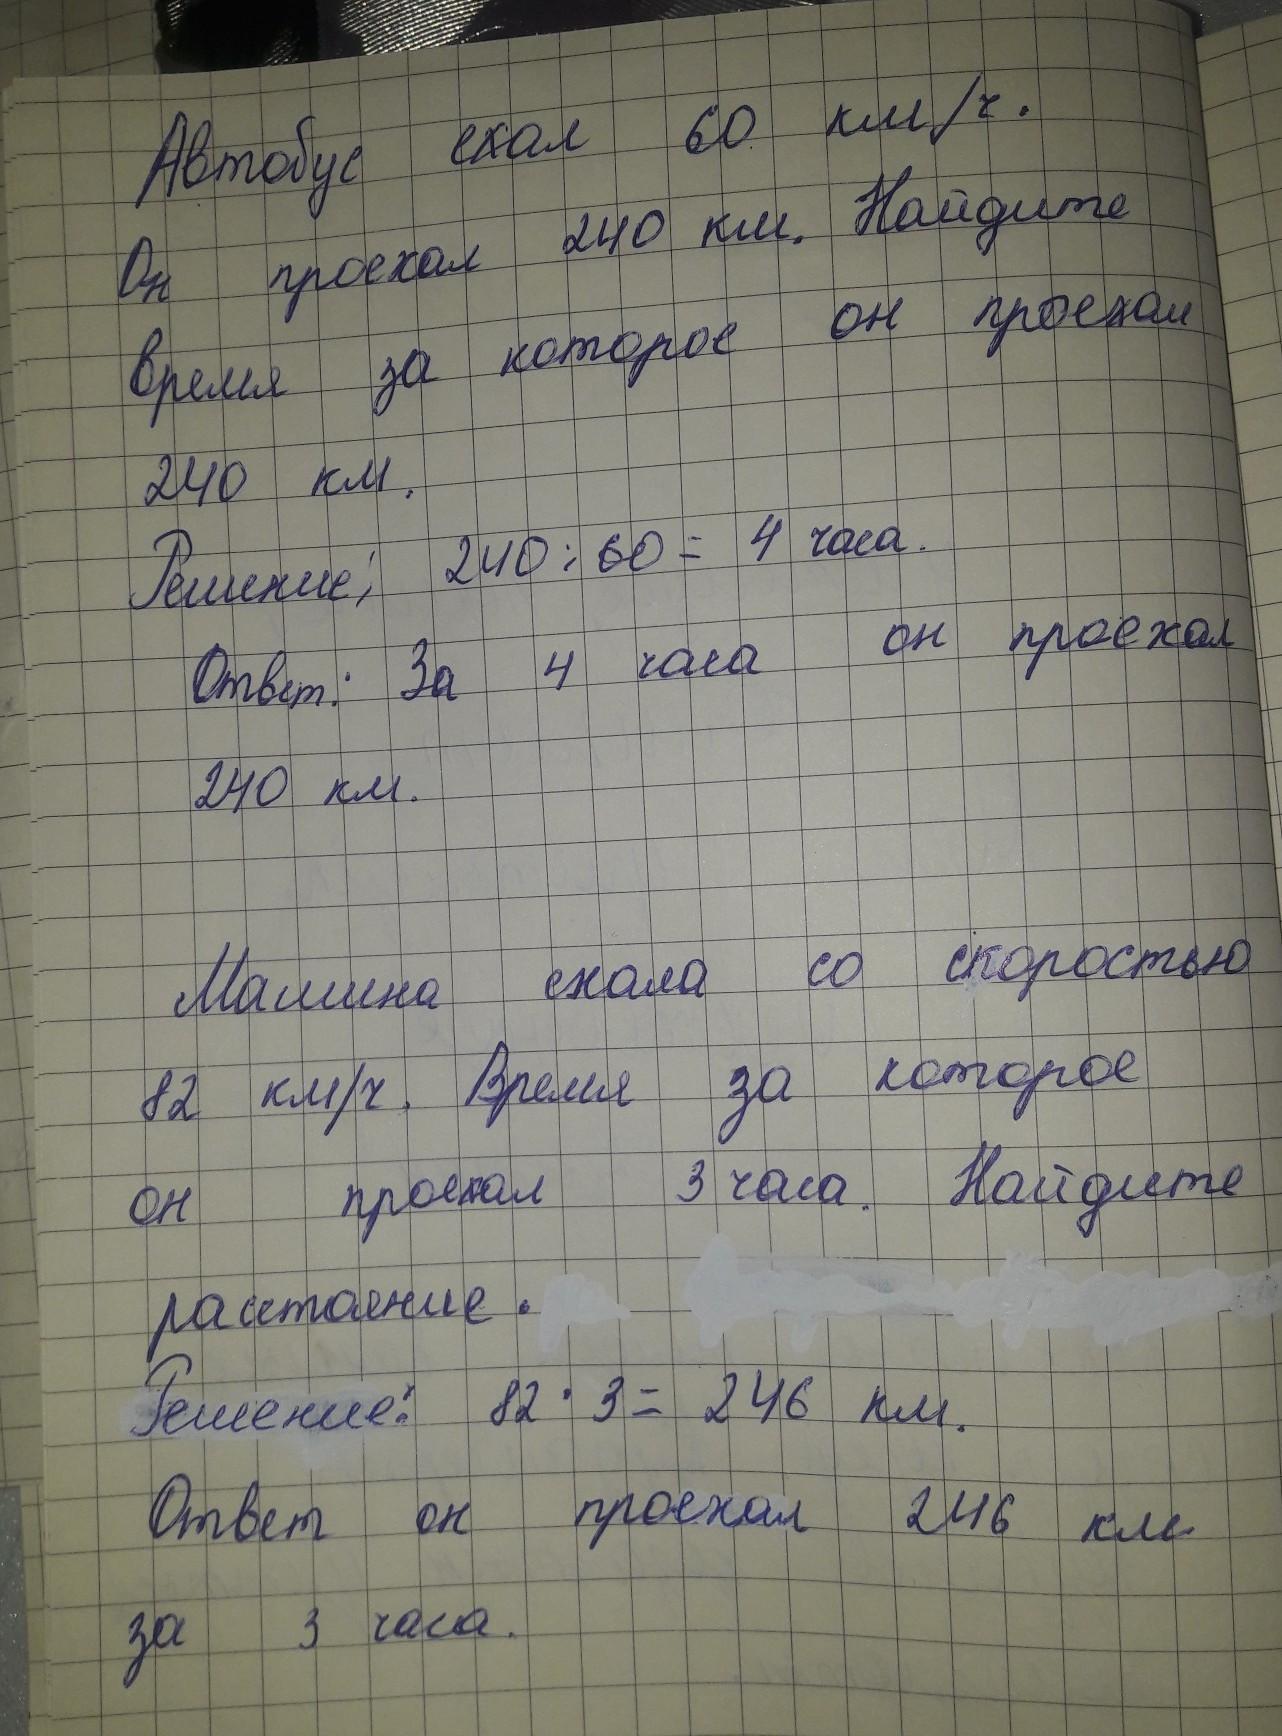 Автобус ехал 60 км/ч.
Он проехал 240 км. Найдите
время за которое он проехал
240 км.
Решение: 240 : 60 = 4 часа.
Ответ: За 4 часа он проехал
240 км.
Машина ехала со скоростью
82 км/ч. Время за которое
он проехал 3 часа. Найдите
расстояние.
Решение: 82 · 3 = 246 км.
Ответ он проехал 246 км
за 3 часа.